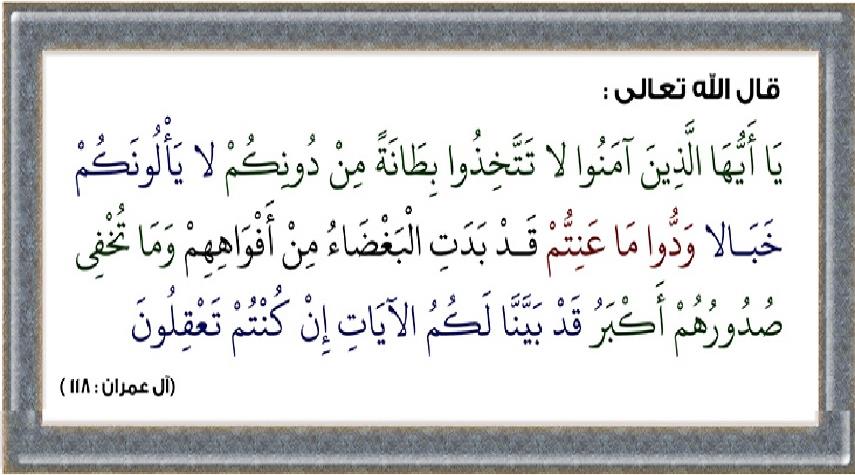 قال الله تعالى :
يَا أَيُّهَا الَّذِينَ آمَنُوا لا تَتَّخِذُوا بِطَانَةً مِنْ دُونِكُمْ لا يَأْلُونَكُمْ
خَبَالا وَدُّوا مَا عَنِتُّمْ قَدْ بَدَتِ الْبَغْضَاءُ مِنْ أَفْوَاهِهِمْ وَمَا تُخْفِي
صُدُورُهُمْ أَكْبَرُ قَدْ بَيَّنَّا لَكُمُ الآيَاتِ إِنْ كُنْتُمْ تَعْقِلُونَ
(آل عمران : ١١٨ )